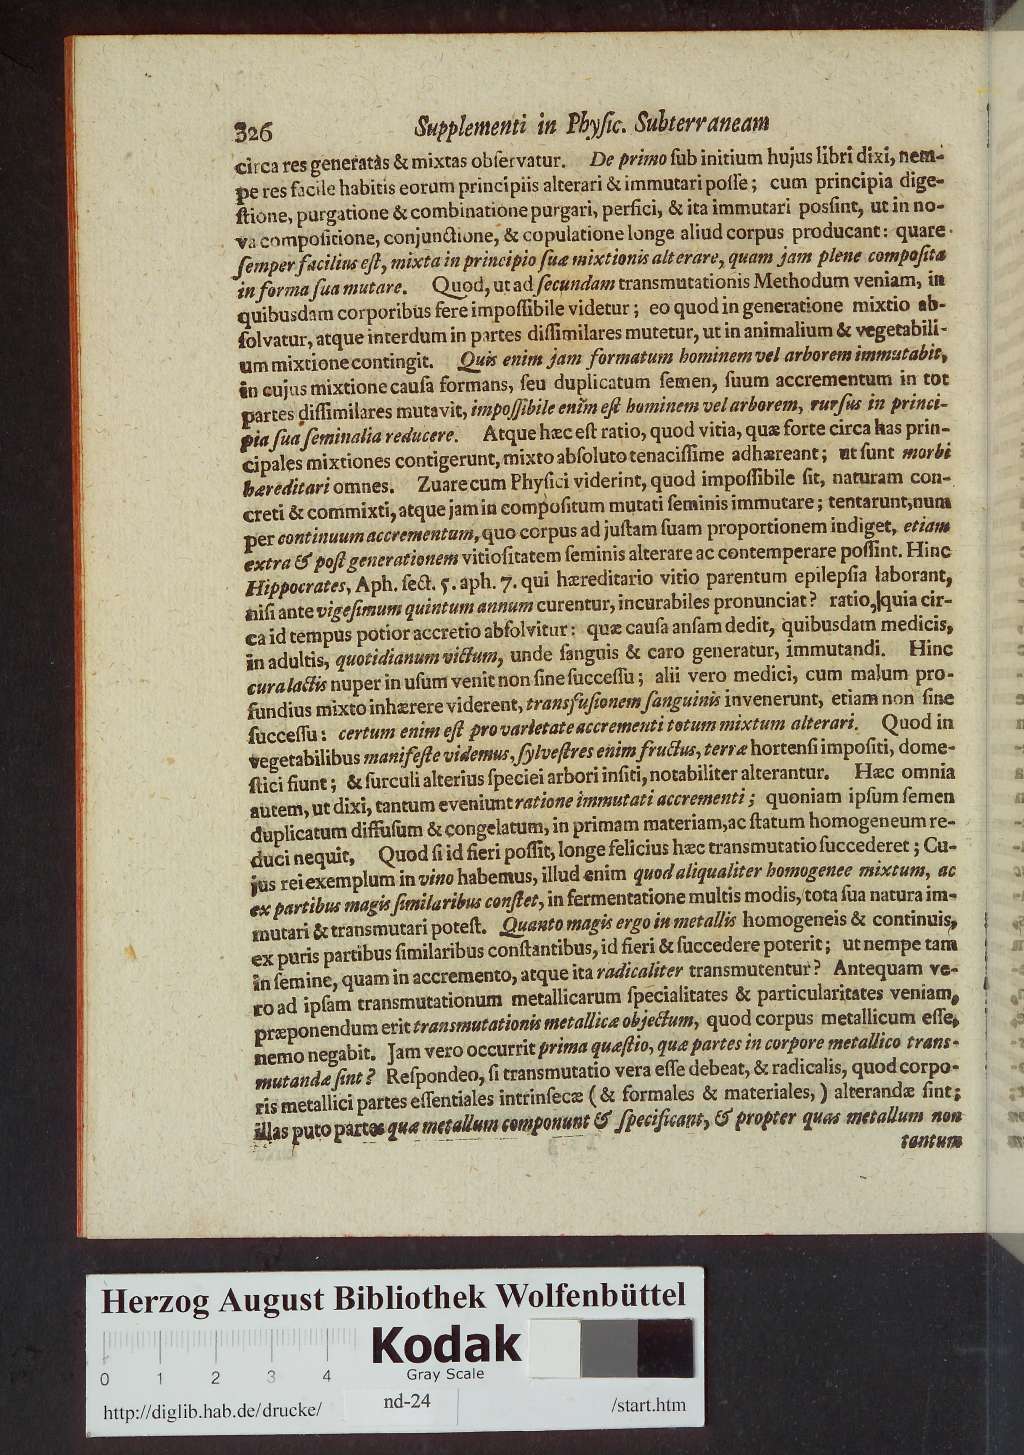 326 Supplementi in Physic. Subterraneam
circa res generatas & mixtas obſervatur. De primo ſub initium hujus libri dixi, nem-
pe res facile habitis eorum principiis alterari & immutari poſſe; cum principia dige-
ſtione, purgatione & combinatione purgari, perfici, & ita immutari posſint, ut in no-
va compoſitione, conjunctione, & copulatione longe aliud corpus producant: quare
ſemper facilius eſt, mixta in principio ſuæ mixtionis alterare, quam jam plene compoſita
in forma ſua mutare. Quod, ut ad ſecundam transmutationis Methodum veniam, in
quibusdam corporibus fere impoſſibile videtur; eo quod in generatione mixtio ab-
ſolvatur, atque interdum in partes diſſimilares mutetur, ut in animalium & vegetabili-
um mixtione contingit. Quis enim jam formatum hominem vel arborem immutabit,
in cujus mixtione cauſa formans, ſeu duplicatum ſemen, ſuum accrementum in tot
partes diſſimilares mutavit, impoſſibile enim eſt hominem vel arborem, rurſus in princi-
pia ſua ſeminalia reducere. Atque hæc eſt ratio, quod vitia, quæ forte circa has prin-
cipales mixtiones contigerunt, mixto abſoluto tenaciſſime adhæreant; ut ſunt morbi
hæreditari omnes. Zuare cum Phyſici viderint, quod impoſſibile ſit, naturam con-
creti & commixti, atque jam in compoſitum mutati ſeminis immutare; tentarunt, num
per continuum accrementum, quo corpus ad juſtam ſuam proportionem indiget, etiam
extra & poſt generationem vitioſitatem ſeminis alterare ac contemperare poſſint. Hinc
Hippocrates, Aph. ſect. 5. aph. 7. qui hæreditario vitio parentum epilepſia laborant,
niſi ante vigeſimum quintum annum curentur, incurabiles pronunciat? ratio, quia cir-
ca id tempus potior accretio abſolvitur: quæ cauſa anſam dedit, quibusdam medicis,
in adultis, quotidianum victum, unde ſanguis & caro generatur, immutandi. Hinc
cura lactis nuper in uſum venit non ſine ſucceſſu; alii vero medici, cum malum pro-
fundius mixto inhærere viderent, transfuſionem ſanguinis invenerunt, etiam non ſine
ſucceſſu: certum enim eſt pro varietate accrementi totum mixtum alterari. Quod in
vegetabilibus manifeſte videmus, ſylveſtres enim fructus, terræ hortenſi impoſiti, dome-
ſtici fiunt; & ſurculi alterius ſpeciei arbori inſiti, notabiliter alterantur. Hæc omnia
autem, ut dixi, tantum eveniunt ratione immutati accrementi; quoniam ipſum ſemen
duplicatum diffuſum & congelatum, in primam materiam, ac ſtatum homogeneum re-
duci nequit, Quod ſi id fieri poſſit, longe felicius hæc transmutatio ſuccederet; Cu-
jus rei exemplum in vino habemus, illud enim quod aliqualiter homogenee mixtum, ac
ex partibus magis ſimilaribus conſtet, in fermentatione multis modis, tota ſua natura im-
mutari & transmutari poteſt. Quanto magis ergo in metallis homogeneis & continuis,
ex puris partibus ſimilaribus conſtantibus, id fieri & ſuccedere poterit; ut nempe tam
in ſemine, quam in accremento, atque ita radicaliter transmutentur? Antequam ve-
ro ad ipſam transmutationum metallicarum ſpecialitates & particularitates veniam,
præponendum erit transmutationis metallicæ objectum, quod corpus metallicum eſſe,
nemo negabit. Jam vero occurrit prima quæſtio, quæ partes in corpore metallico trans-
mutandæ ſint? Reſpondeo, ſi transmutatio vera eſſe debeat, & radicalis, quod corpo-
ris metallici partes eſſentiales intrinſecæ (& formales & materiales,) alterandæ ſint;
illas puto partes quæ metallum componunt & ſpecificant, & propter quas metallum non
tantum
Herzog August Bibliothek Wolfenbüttel
Kodak
Gray Scale
0 1 2 3 4
http://diglib.hab.de/drucke/ nd-24 /start.htm